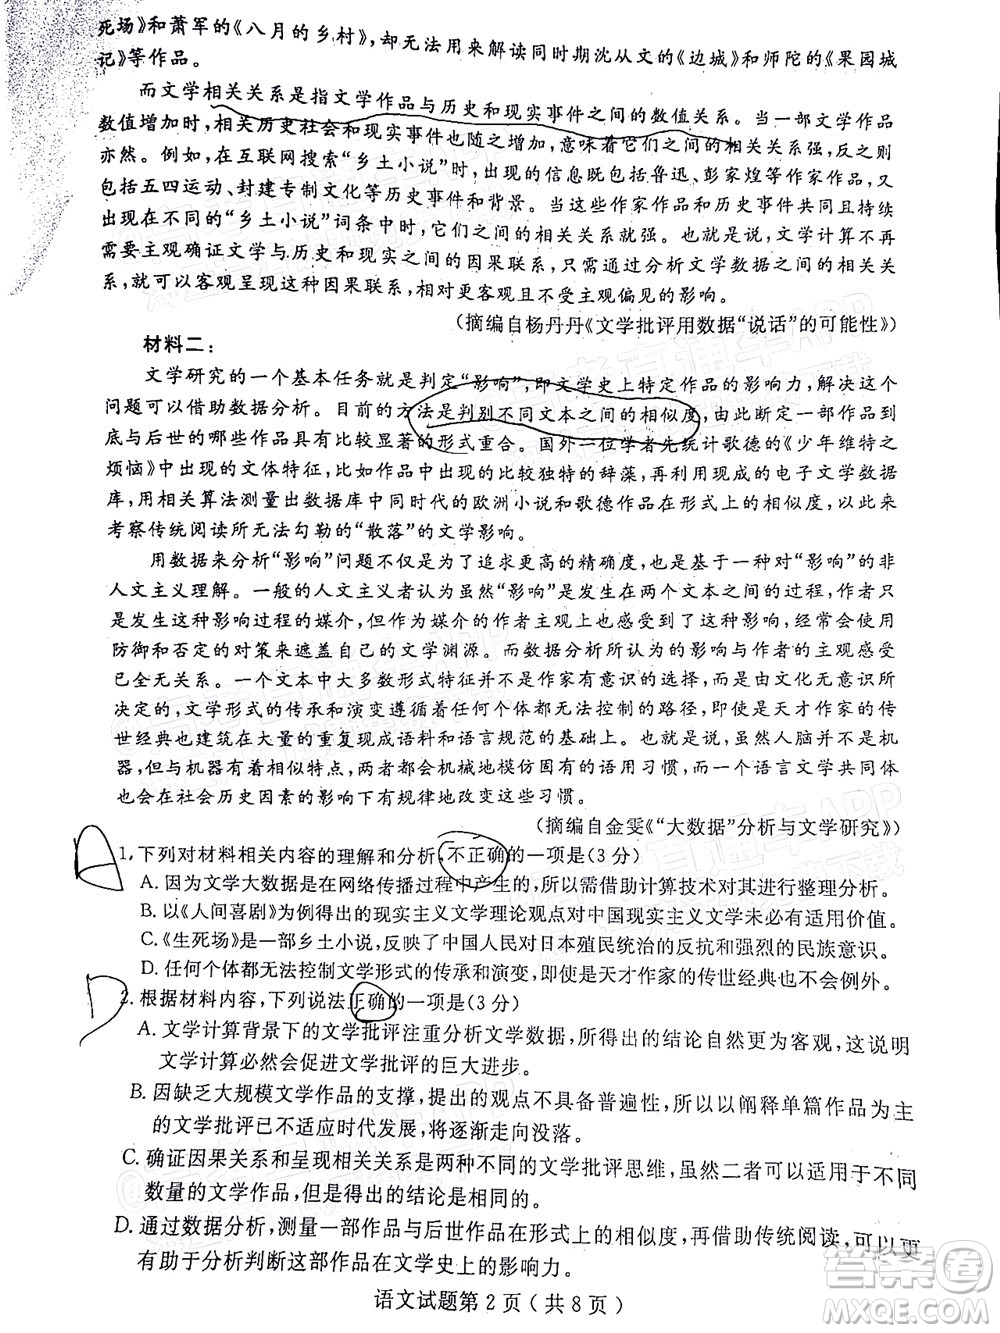 死场》和萧军的《八月的乡村》，却无法用来解读同时期沈从文的《边城》和师陀的《果园城
记》等作品。
而文学相关关系是指文学作品与历史和现实事件之间的数值关系。当一部文学作品
数值增加时，相关历史社会和现实事件也随之增加，意味着它们之间的相关关系强，反之
亦然。例如，在互联网搜索“乡土小说”时，出现的信息既包括鲁迅、彭家煌等作家作品，又
包括五四运动、封建专制文化等历史事件和背景。当这些作家作品和历史事件共同且持续
出现在不同的“乡土小说”词条中时，它们之间的相关关系就强。也就是说，文学计算不再
需要主观确证文学与历史和现实之间的因果联系，只需通过分析文学数据之间的相关关
系，就可以客观呈现这种因果联系，相对更客观且不受主观偏见的影响。
（摘编自杨丹丹《文学批评用数据“说话”的可能性》）
材料二：
文学研究的一个基本任务就是判定“影响”，即文学史上特定作品的影响力，解决这个
问题可以借助数据分析。目前的方法是判别不同文本之间的相似度，由此断定一部作品到
底与后世的哪些作品具有比较显著的形式重合。国外一位学者先统计歌德的《少年维特之
烦恼》中出现的文体特征，比如作品中出现的比较独特的辞藻，再利用现成的电子文学数据
库，用相关算法测量出数据库中同时代的欧洲小说和歌德作品在形式上的相似度，以此来
考察传统阅读所无法勾勒的“散落”的文学影响。
用数据来分析“影响”问题不仅是为了追求更高的精确度，也是基于一种对“影响”的非
人文主义理解。一般的人文主义者认为文学“影响”是发生在两个文本之间的过程，作者是
发生这种影响过程的媒介，但作为媒介的作者主观上也许并不承认这种影响，经常会使用
防御和否定的对策来遮盖自己的文学渊源。而数据分析所认为的影响与作者的主观感受
已全无关系。一个文本中大多数形式特征并不是作家有意识的成果，而是由文化无意识所
决定的，文学形式的传承和演变遵循着任何个体都无法控制的路径，即使是天才作家的传
世经典也建筑在大量的重复现成语料和语言规范的基础上。也就是说，虽然人脑并不是机
器，但与机器有相似特点，两者都会机械地模仿固有的语用习惯。而一个语言文学共同体
也会在社会历史因素的影响下有规律地改变这些习惯。
（摘编自金雯《“大数据”分析与文学研究》）
A
1.下列对材料相关内容的理解和分析，不正确的一项是（3分）
A. 因为文学大数据是在网络传播过程中产生的，所以需借助计算技术对其进行整理分析。
B. 以《人间喜剧》为例得出的现实主义文学理论观点对中国现实主义文学未必有适用价值。
C.《生死场》是一部乡土小说，反映了中国人民对日本殖民统治的反抗和强烈的民族意识。
D. 任何个体都无法控制文学形式的传承和演变，即使是天才作家的传世经典也不会例外。
D
2. 根据材料内容，下列说法正确的一项是（3分）
A. 文学计算背景下的文学批评注重分析文学数据，所得出的结论自然更为客观，这说明
文学计算必然会促进文学批评的巨大进步。
B. 因缺乏大规模文学作品的支撑，提出的观点不具备普遍性，所以以阐释单篇作品为主
的文学批评已不适应时代发展，将逐渐走向没落。
C. 确证因果关系和呈现相关关系是两种不同的文学批评思维，虽然二者可以适用于不同
数量的文学作品，但是得出的结论是相同的。
D. 通过数据分析，测量一部作品与后世作品在形式上的相似度，再借助传统阅读，可以更
有助于分析判断这部作品在文学史上的影响力。
语文试题第2页（共8页）
答案圈
MXQE.COM